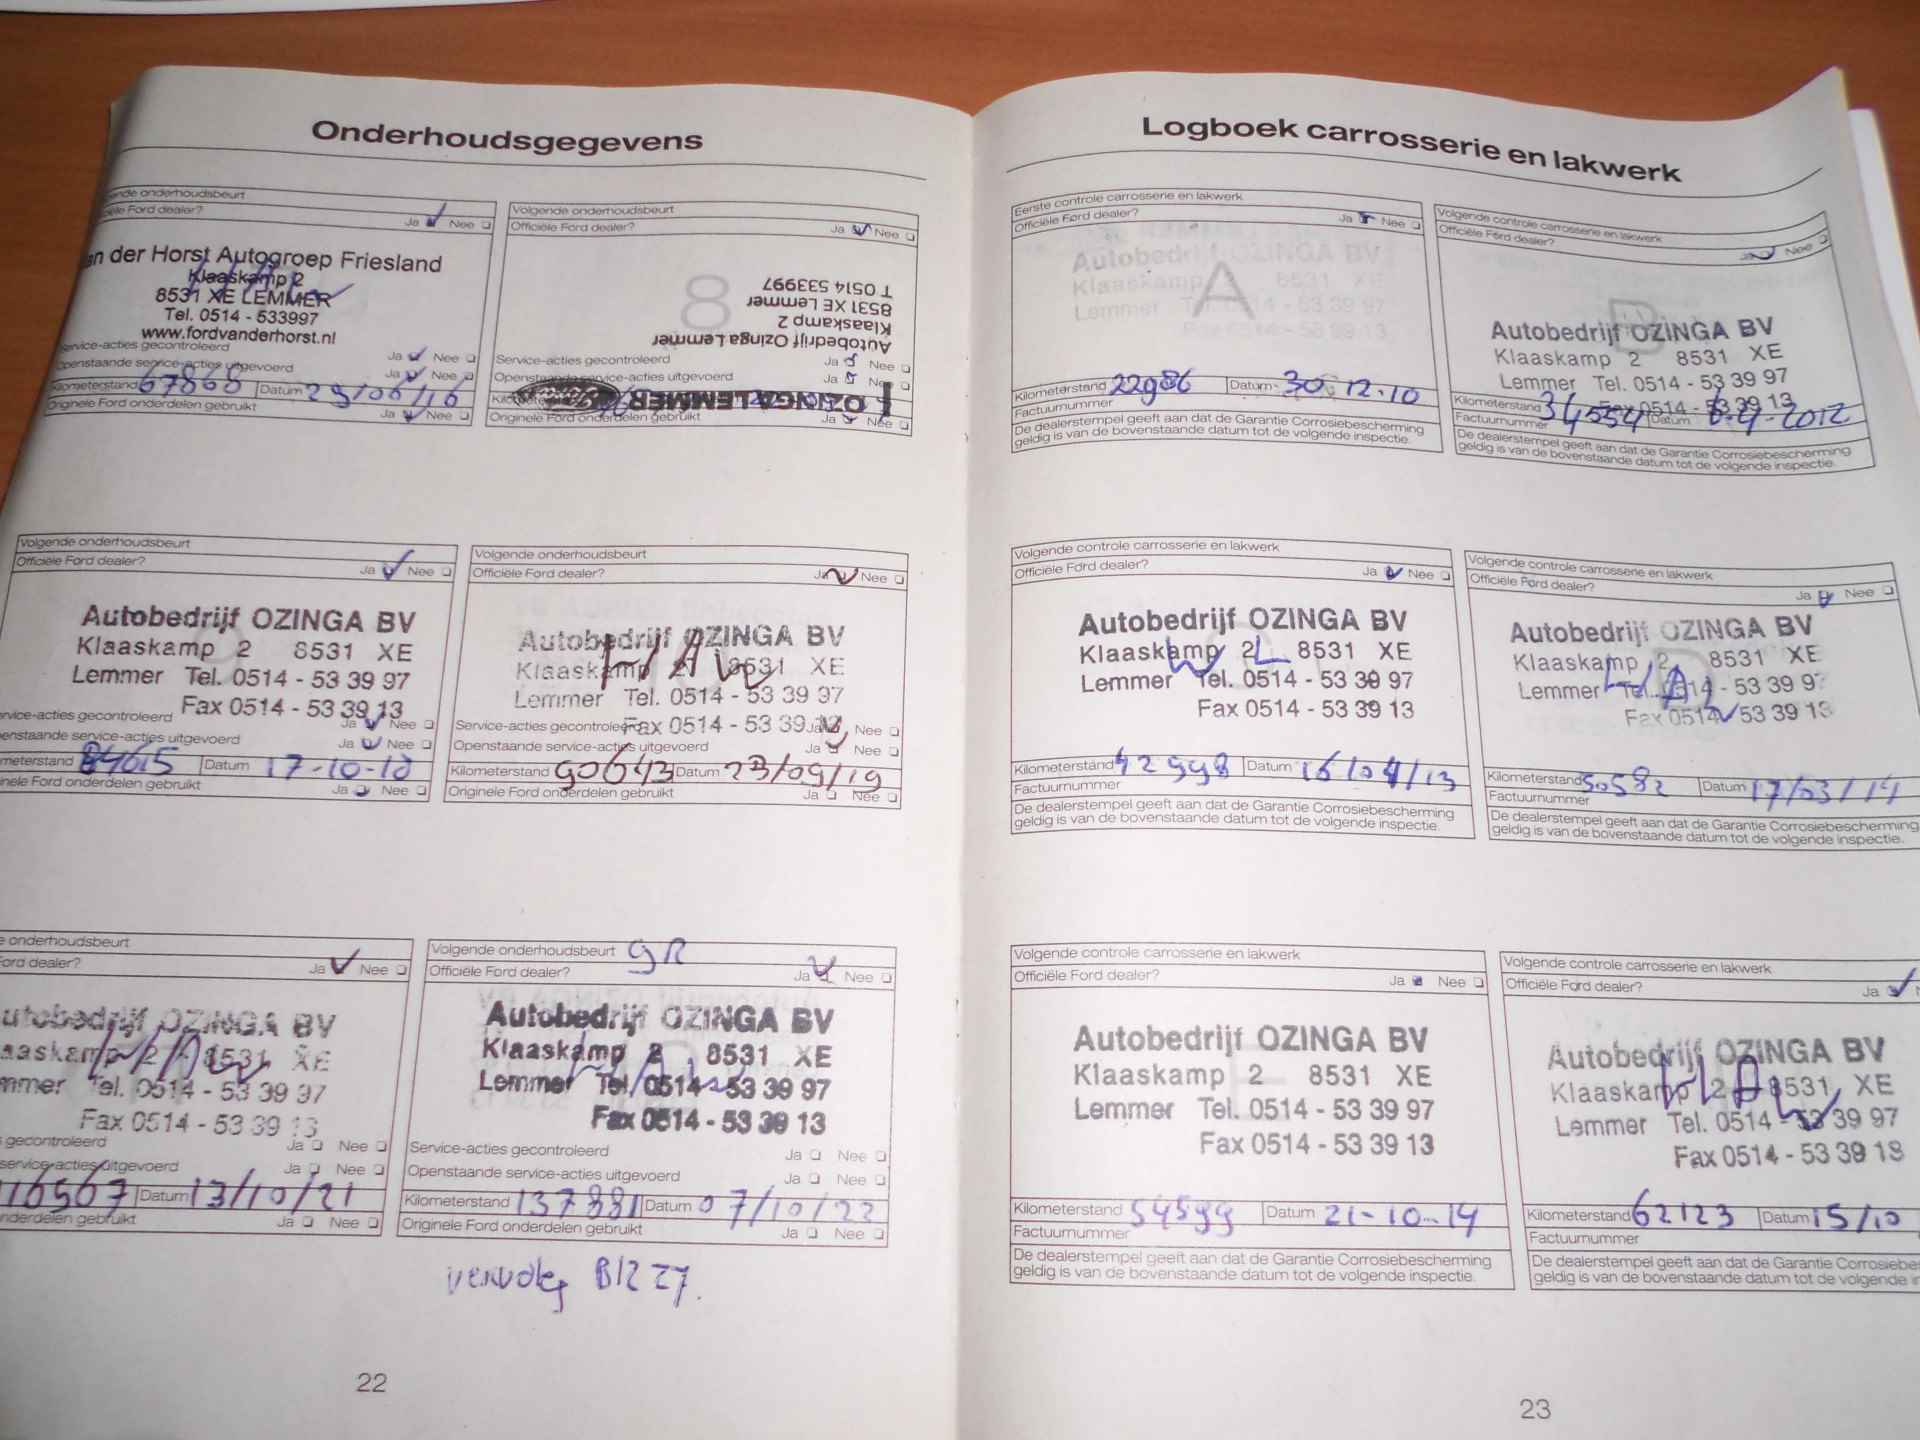 Onderhoudsgegevens
onderhoudsbeurt
Ford dealer? Ja Nee
der Horst Autogroep Friesland
Klaaskamp 2
8531 XE LEMMER
Tel. 0514 - 533997
www.fordvanderhorst.nl
Service-acties gecontroleerd Ja Nee
Openstaande service-acties uitgevoerd Ja Nee
Kilometerstand 67868 Datum 29/06/16
Originele Ford onderdelen gebruikt Ja Nee
Volgende onderhoudsbeurt
Officiële Ford dealer? Ja Nee
8
Autobedrijf Ozinga Lemmer
Klaaskamp 2
8531 XE Lemmer
T 0514 533997
Service-acties gecontroleerd Ja Nee
Openstaande service-acties uitgevoerd Ja Nee
OZINGA LEMMER
Originele Ford onderdelen gebruikt Ja Nee
Volgende onderhoudsbeurt
Officiële Ford dealer? Ja Nee
Autobedrijf OZINGA BV
Klaaskamp 2 8531 XE
Lemmer Tel. 0514 - 53 39 97
Fax 0514 - 53 39 13
gecontroleerd Ja Nee
service-acties uitgevoerd Ja Nee
84615 Datum 17-10-18
Ford onderdelen gebruikt Ja Nee
Volgende onderhoudsbeurt
Officiële Ford dealer? Ja Nee
Autobedrijf OZINGA BV
Klaaskamp 2 8531 XE
Lemmer Tel. 0514 - 53 39 97
Fax 0514 - 53 39 13
Service-acties gecontroleerd Ja Nee
Openstaande service-acties uitgevoerd Ja Nee
Kilometerstand 90643 Datum 23/09/19
Originele Ford onderdelen gebruikt Ja Nee
onderhoudsbeurt
Ford dealer? Ja Nee
OZINGA BV
8531 XE
Tel. 0514 - 53 39 97
Fax 0514 - 53 39 13
gecontroleerd Ja Nee
service-acties uitgevoerd Ja Nee
116567 Datum 13/10/21
onderdelen gebruikt Ja Nee
Volgende onderhoudsbeurt GR
Officiële Ford dealer? Ja Nee
Autobedrijf OZINGA BV
Klaaskamp 2 8531 XE
Lemmer Tel. 0514 - 53 39 97
Fax 0514 - 53 39 13
Service-acties gecontroleerd Ja Nee
Openstaande service-acties uitgevoerd Ja Nee
Kilometerstand 137881 Datum 07/10/22
Originele Ford onderdelen gebruikt Ja Nee
vervolg BLZ 27.
22
Logboek carrosserie en lakwerk
Eerste controle carrosserie en lakwerk
Officiële Ford dealer? Ja Nee
A
Autobedrijf OZINGA BV
Klaaskamp 2 8531 XE
Lemmer Tel. 0514 - 53 39 97
Fax 0514 - 53 39 13
Kilometerstand 22986 Datum 30.12.10
Factuurnummer
De dealerstempel geeft aan dat de Garantie Corrosiebescherming
geldig is van de bovenstaande datum tot de volgende inspectie.
Volgende controle carrosserie en lakwerk
Officiële Ford dealer? Nee
B
Autobedrijf OZINGA BV
Klaaskamp 2 8531 XE
Lemmer Tel. 0514 - 53 39 97
Fax 0514 - 53 39 13
Kilometerstand 34554 Datum 6-4-2012
Factuurnummer
De dealerstempel geeft aan dat de Garantie Corrosiebescherming
geldig is van de bovenstaande datum tot de volgende inspectie.
Volgende controle carrosserie en lakwerk
Officiële Ford dealer? Ja Nee
Autobedrijf OZINGA BV
Klaaskamp 2 8531 XE
Lemmer Tel. 0514 - 53 39 97
Fax 0514 - 53 39 13
Kilometerstand 42998 Datum 16/04/13
Factuurnummer
De dealerstempel geeft aan dat de Garantie Corrosiebescherming
geldig is van de bovenstaande datum tot de volgende inspectie.
Volgende controle carrosserie en lakwerk
Officiële Ford dealer? Ja Nee
Autobedrijf OZINGA BV
Klaaskamp 2 8531 XE
Lemmer Tel. 0514 - 53 39 97
Fax 0514 - 53 39 13
Kilometerstand 50582 Datum 17/03/14
Factuurnummer
De dealerstempel geeft aan dat de Garantie Corrosiebescherming
geldig is van de bovenstaande datum tot de volgende inspectie.
Volgende controle carrosserie en lakwerk
Officiële Ford dealer? Ja Nee
E
Autobedrijf OZINGA BV
Klaaskamp 2 8531 XE
Lemmer Tel. 0514 - 53 39 97
Fax 0514 - 53 39 13
Kilometerstand 54599 Datum 21-10-14
Factuurnummer
De dealerstempel geeft aan dat de Garantie Corrosiebescherming
geldig is van de bovenstaande datum tot de volgende inspectie.
Volgende controle carrosserie en lakwerk
Officiële Ford dealer? Ja
Autobedrijf OZINGA BV
Klaaskamp 2 8531 XE
Lemmer Tel. 0514 - 53 39 97
Fax 0514 - 53 39 13
Kilometerstand 62123 Datum 15/10
Factuurnummer
De dealerstempel geeft aan dat de Garantie
geldig is van de bovenstaande datum tot de volgende
23